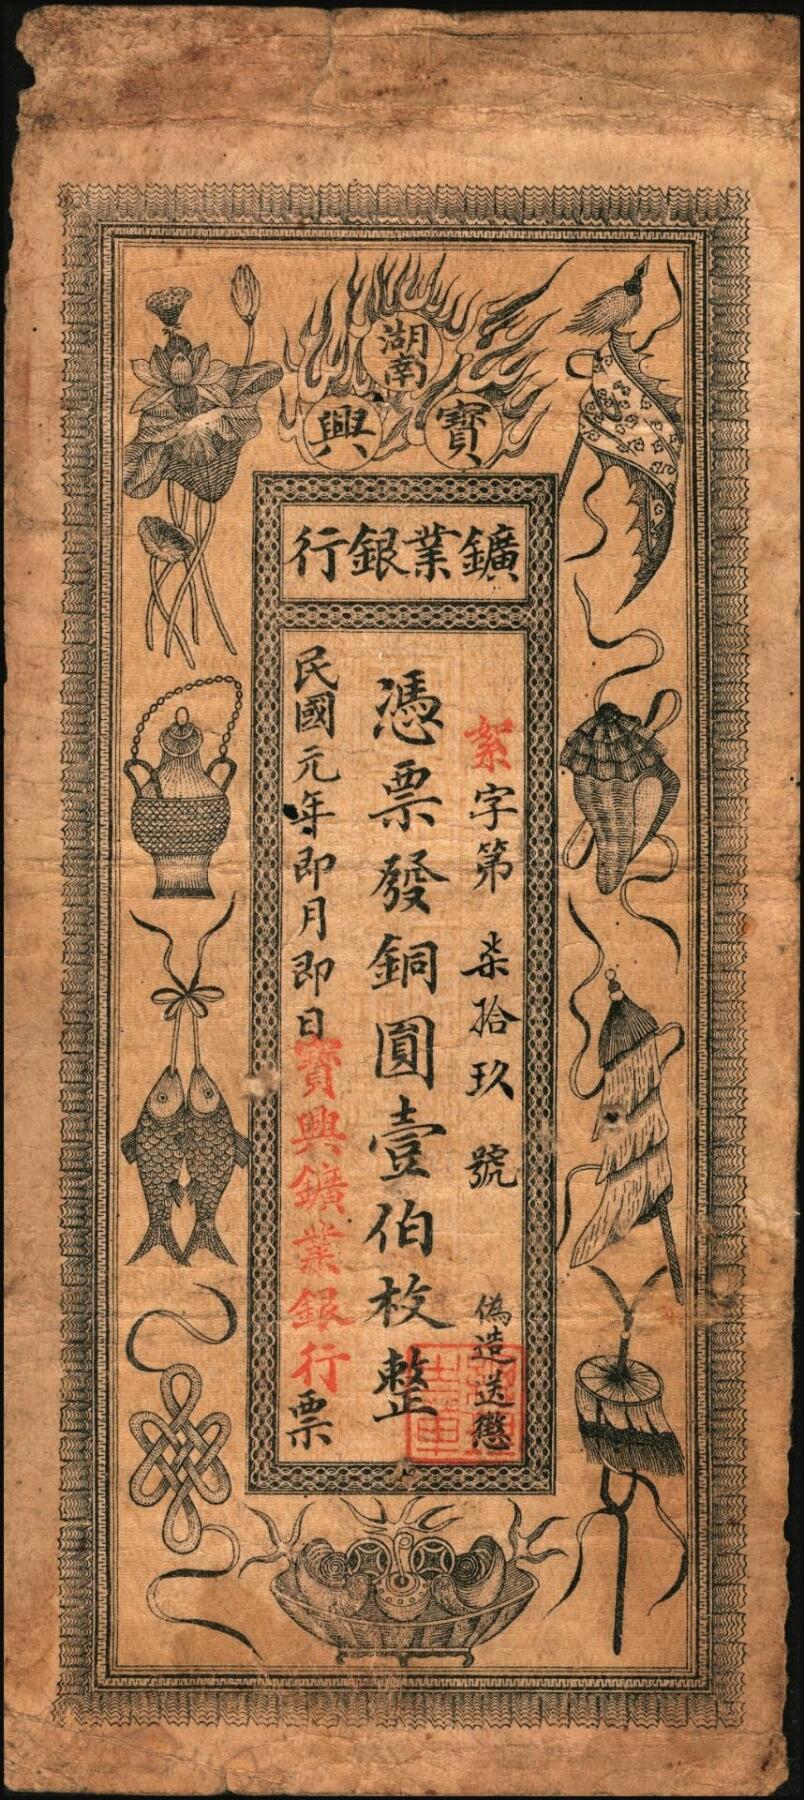 湖南
寶興
鑛業銀行
絮字第柒拾玖號
偽造送懲
憑票發銅圓壹伯枚整
民國元年即月即日寶興鑛業銀行票